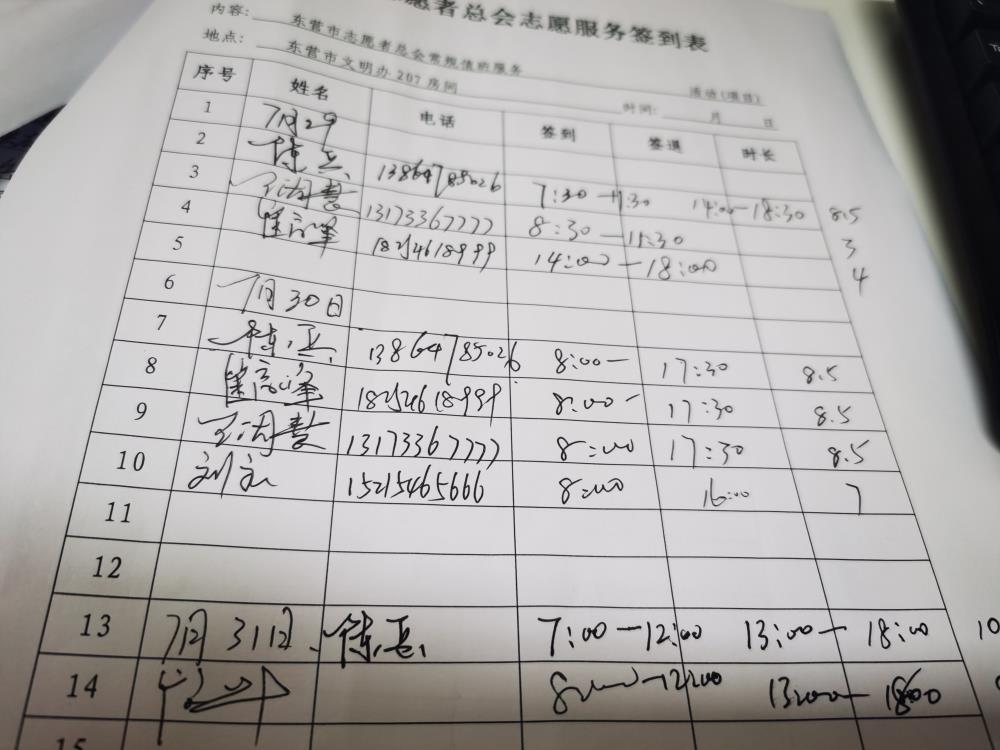 愿者总会志愿服务签到表
内容: 东营市志愿者总会常规值班服务 活动(项目)
地点: 东营市文明办207房间 时间: 月 日
序号 姓名 电话 签到 签退 时长
1 7月29
2 13864785026 7:30-11:30 14:00-18:30 8.5
3 13173367777 8:30-11:30 3
4 18254618999 14:00-18:00 4
5
6 7月30日
7 13864785026 8:00- 17:30 8.5
8 18254618999 8:00- 17:30 8.5
9 13173367777 8:00 17:30 8.5
10 15215465666 8:00 16:00 7
11
12
13 7月31日 7:00-12:00 13:00-18:00 10
14 8:00-12:00 13:00-18:00
15